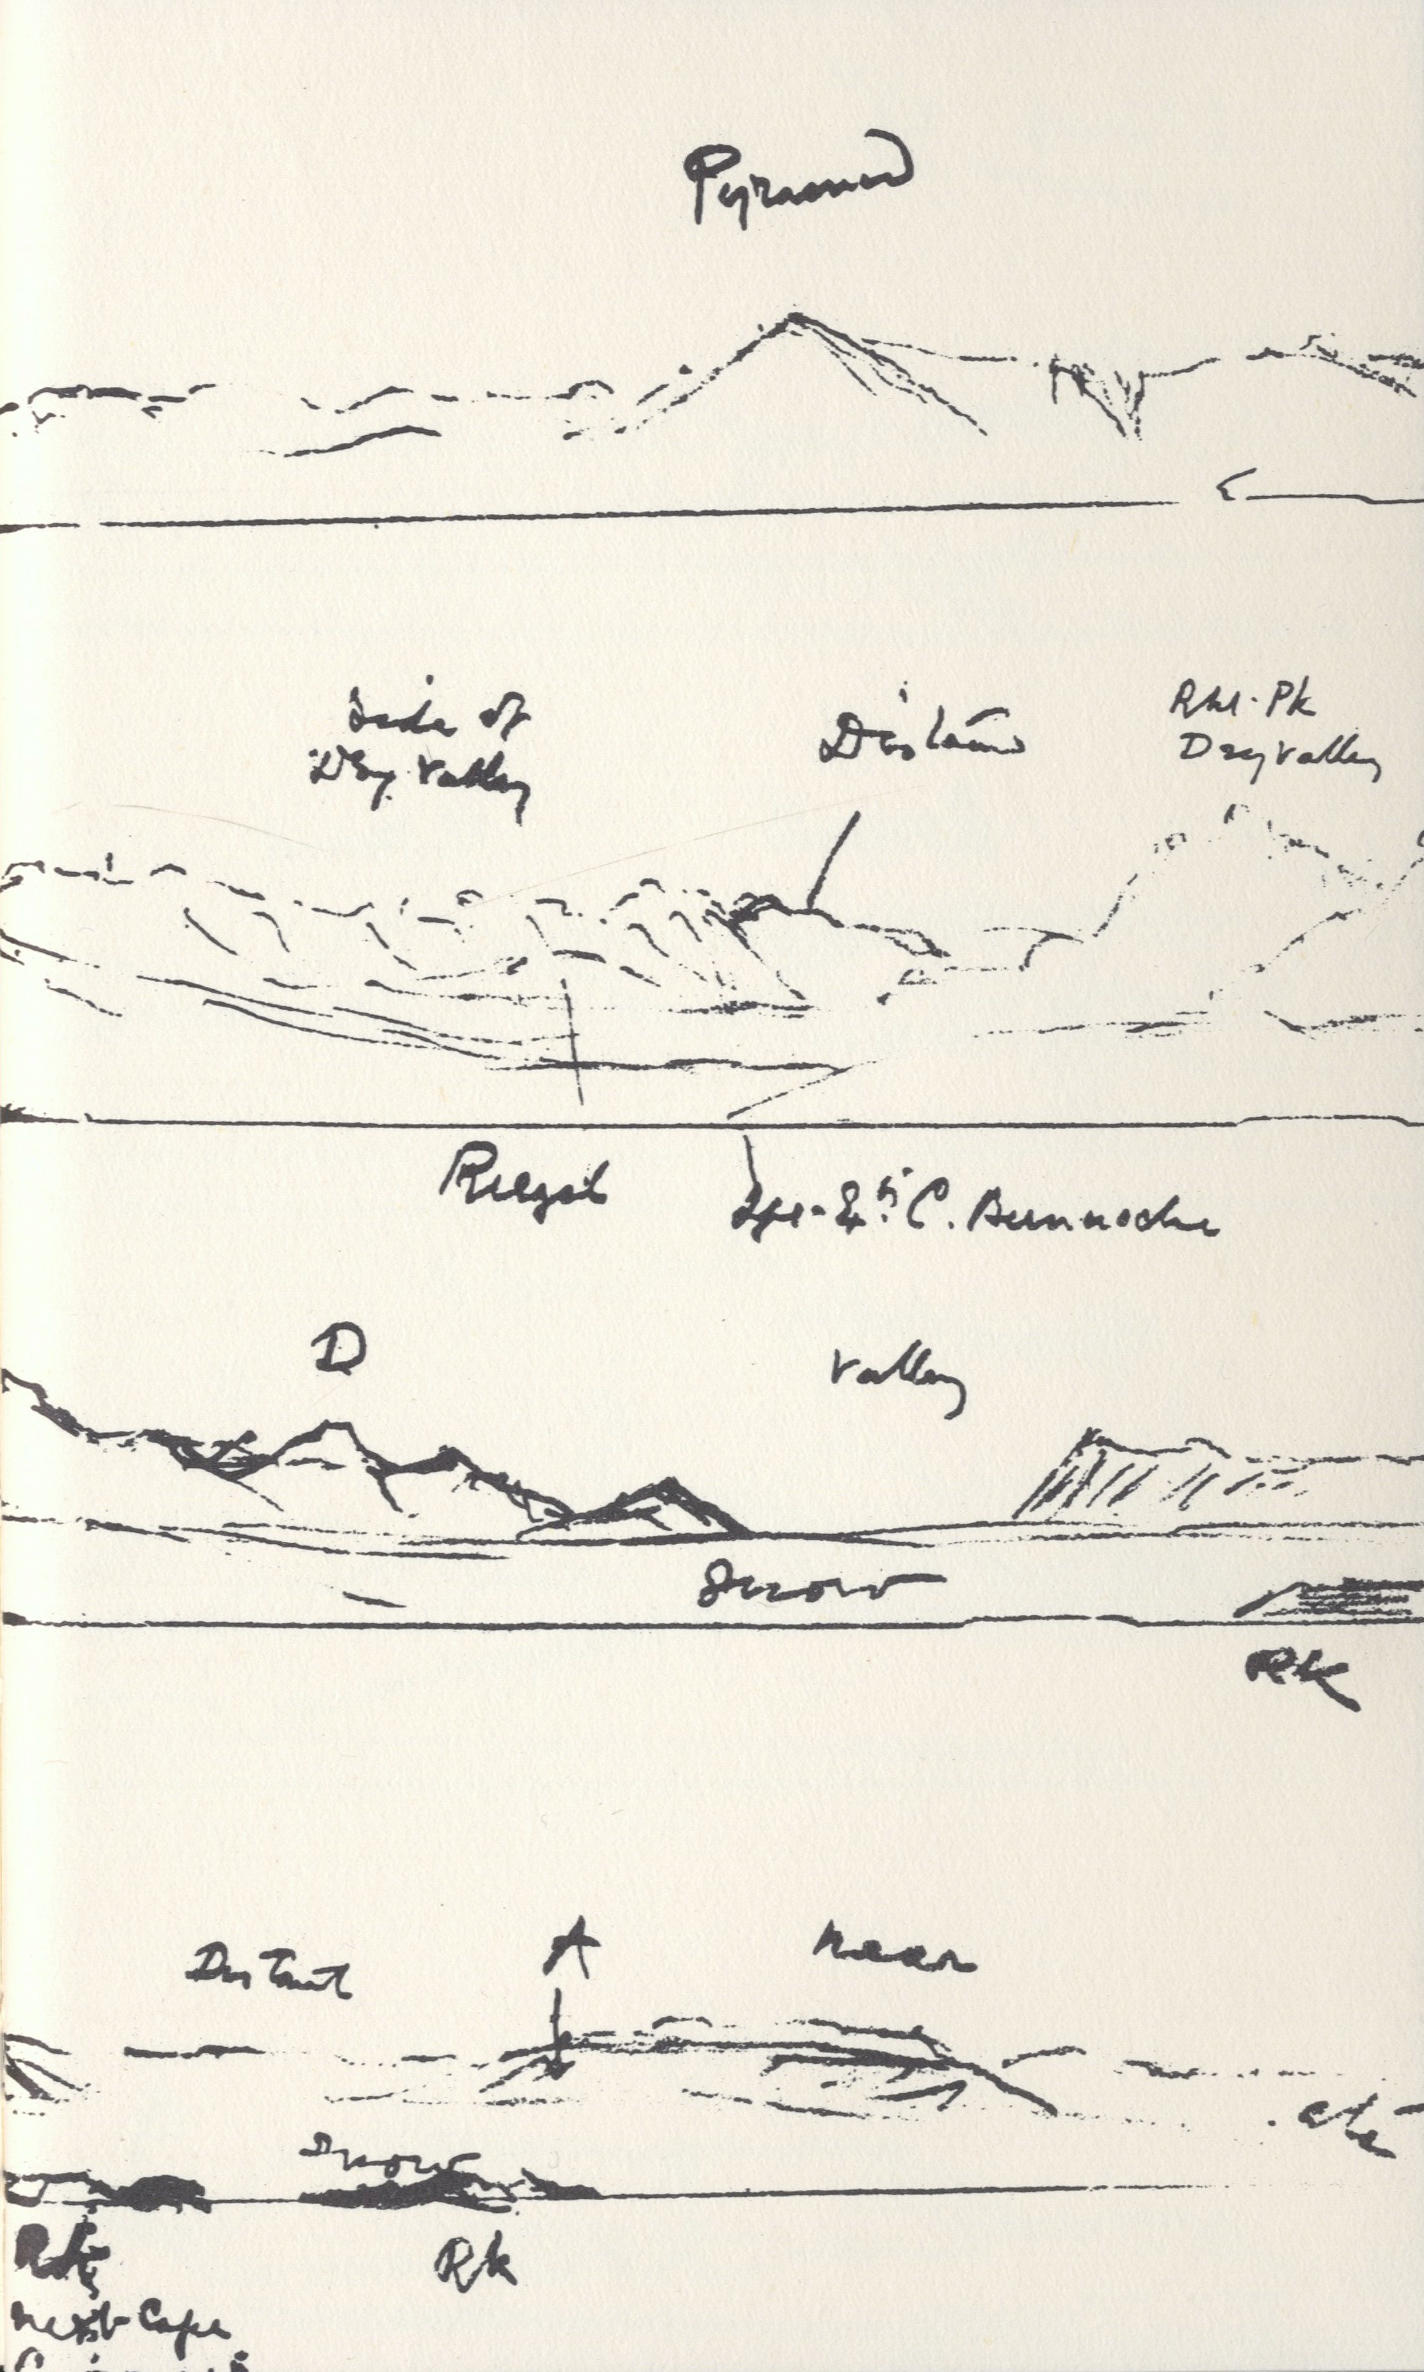 Pyramid
Side of
Dry Valley
Distant
Pk
Dry Valley
Riegel
C. Bernacchi
D
Valley
Snow
Rk
Distant
A
near
etc
Snow
Rk
Rk
next Cape